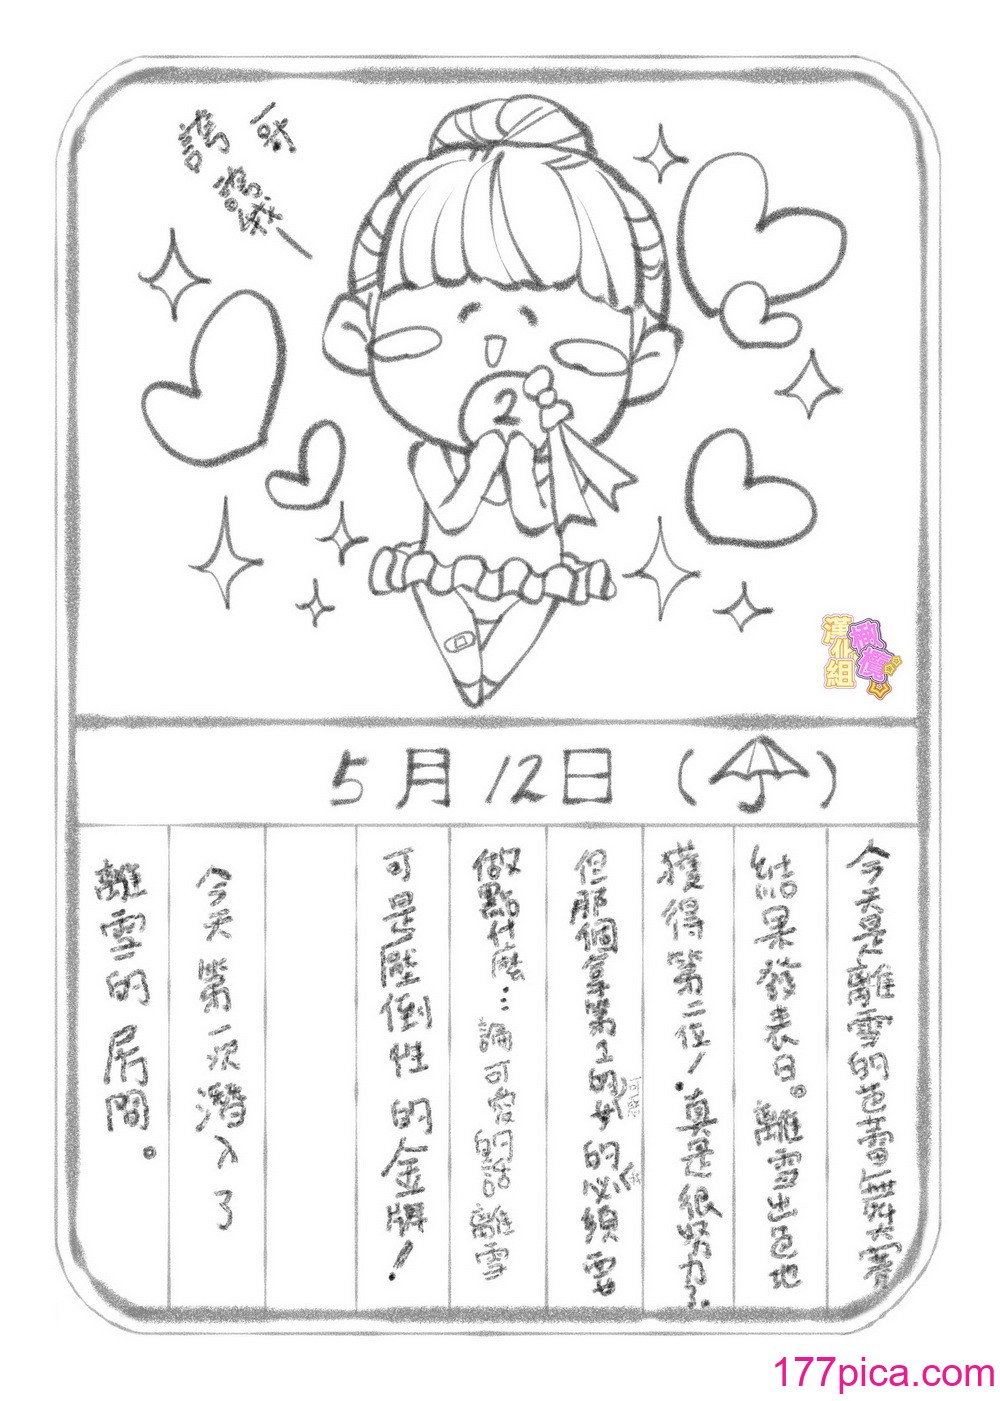 誇我
5月12日（☂）
今天是離雪的芭蕾舞大賽
結果發表日。離雪出色地
獲得第二位！真是很努力了。
但那個拿第1的女的必須要
做點什麼…論可愛的話離雪
可是壓倒性的金牌！
今天第一次潛入了
離雪的房間。
漢化組
177pica.com